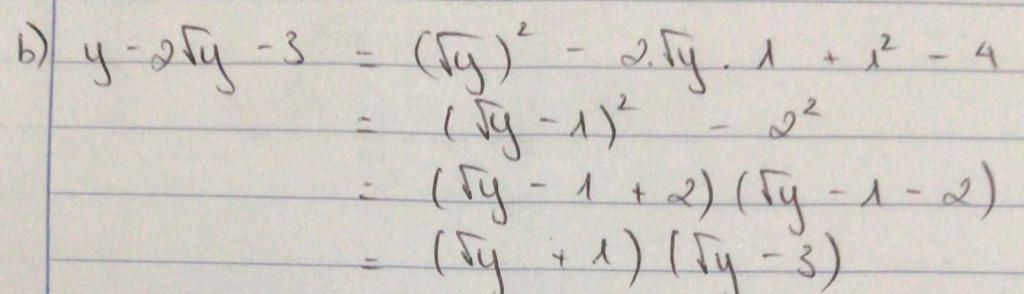 b) y - 2√y - 3 = (√y)² - 2.√y . 1 + 1² - 4
= (√y - 1)² - 2²
= (√y - 1 + 2) (√y - 1 - 2)
= (√y + 1) (√y - 3)